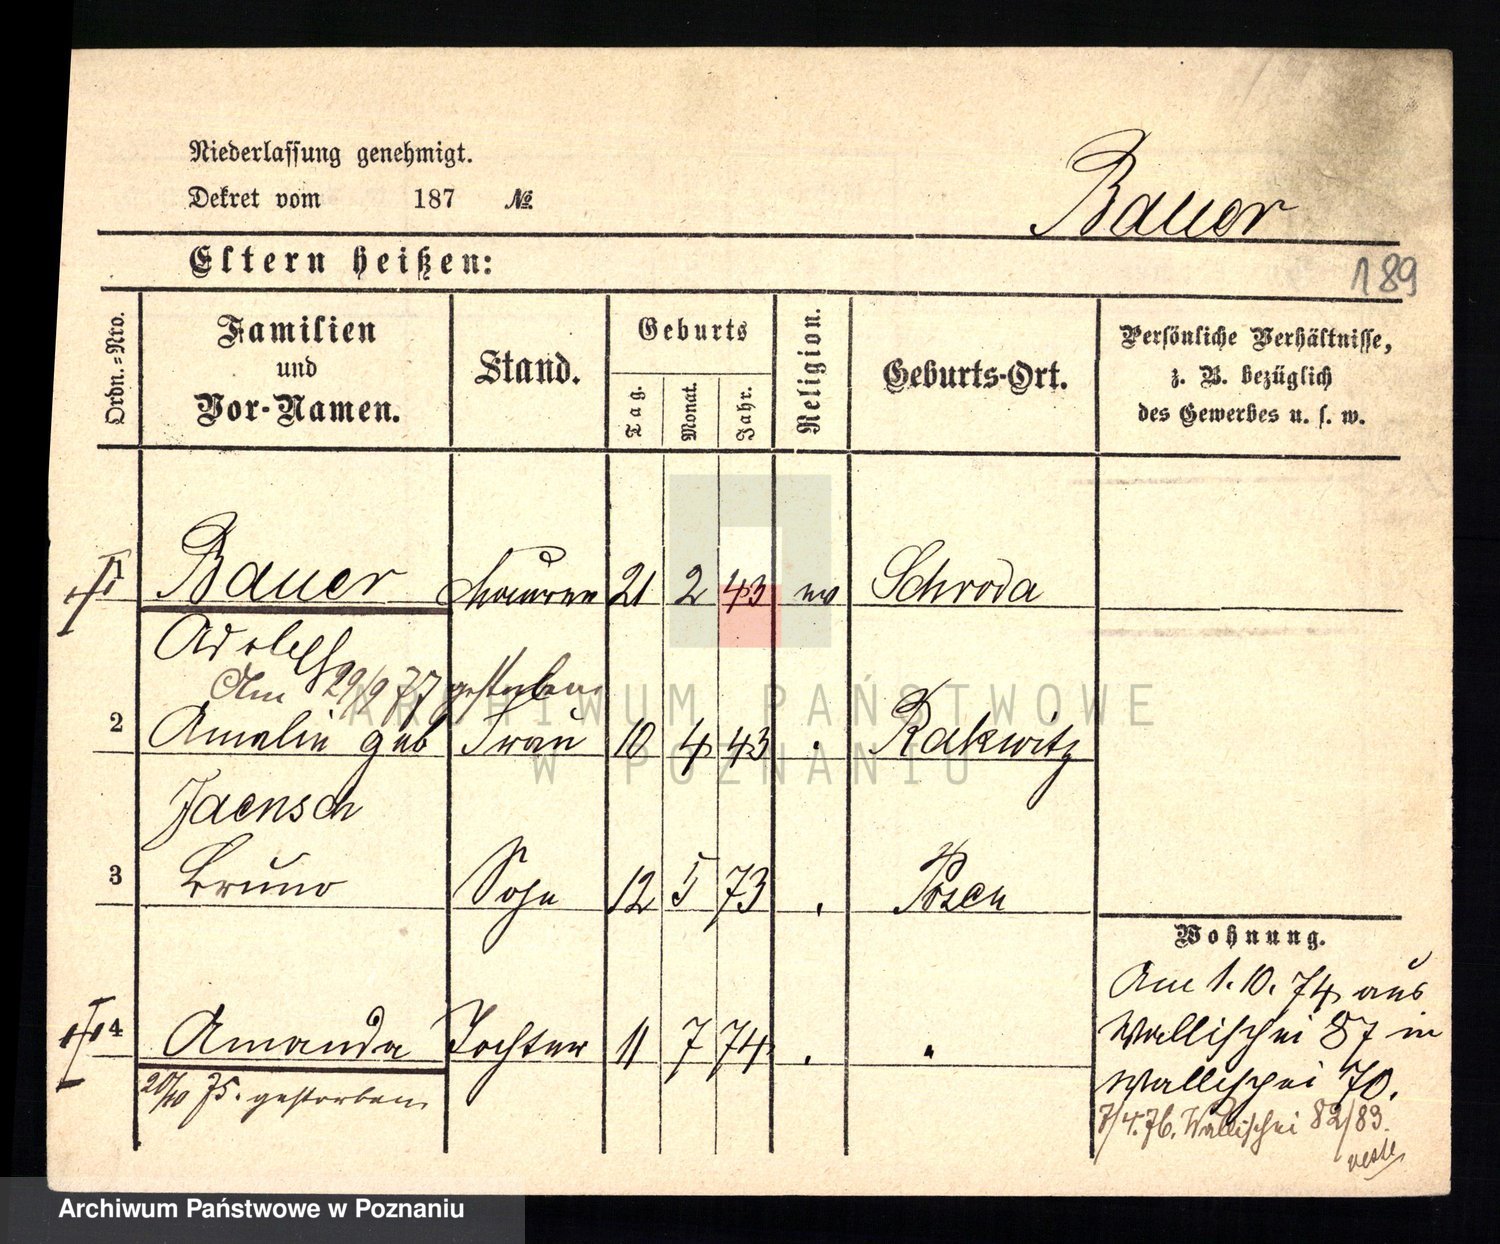 Niederlassung genehmigt.
Dekret vom 187 №
Bauer
Eltern heißen:
189
Ordn.=Nro.
Familien
und
Vor-Namen.
Stand.
Geburts
Tag.
Monat.
Jahr.
Religion.
Geburts-Ort.
Persönliche Verhältnisse,
z. B. bezüglich
des Gewerbes u. s. w.
1 Bauer 21 2 43 ev Schroda
Adolf
Am 29/9 77 gestorben
2 Amalie geb Frau 10 4 43 Rakwitz
Jaensch
3 Bruno Sohn 12 5 73 Posen
Wohnung.
Am 1. 10. 74 aus
Wallischei 87 in
Wallischei 70.
4 Amanda Tochter 11 7 74 "
20/10 75. gestorben
7/4. 76. Wallischei 82/83.
ARCHIWUM PAŃSTWOWE
W POZNANIU
Archiwum Państwowe w Poznaniu